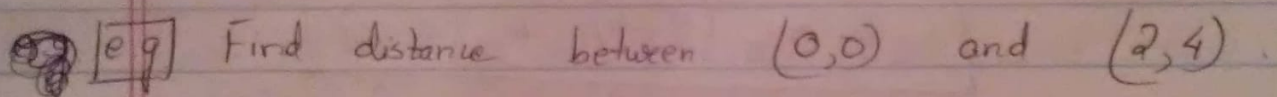 eg Find distance between (0,0) and (2,4).